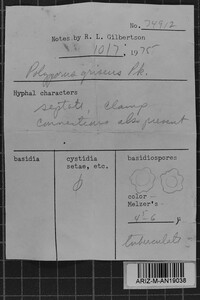 No. 74912
Notes by R. L. Gilbertson
10/7, 1975
Polyporus griseus Pk.
Hyphal characters
septate, clamp
connections also present
basidia
cystidia
setae, etc.
basidiospores
color -
Melzer's -
4-6 µ
tuberculate
ARIZ-M-AN19038